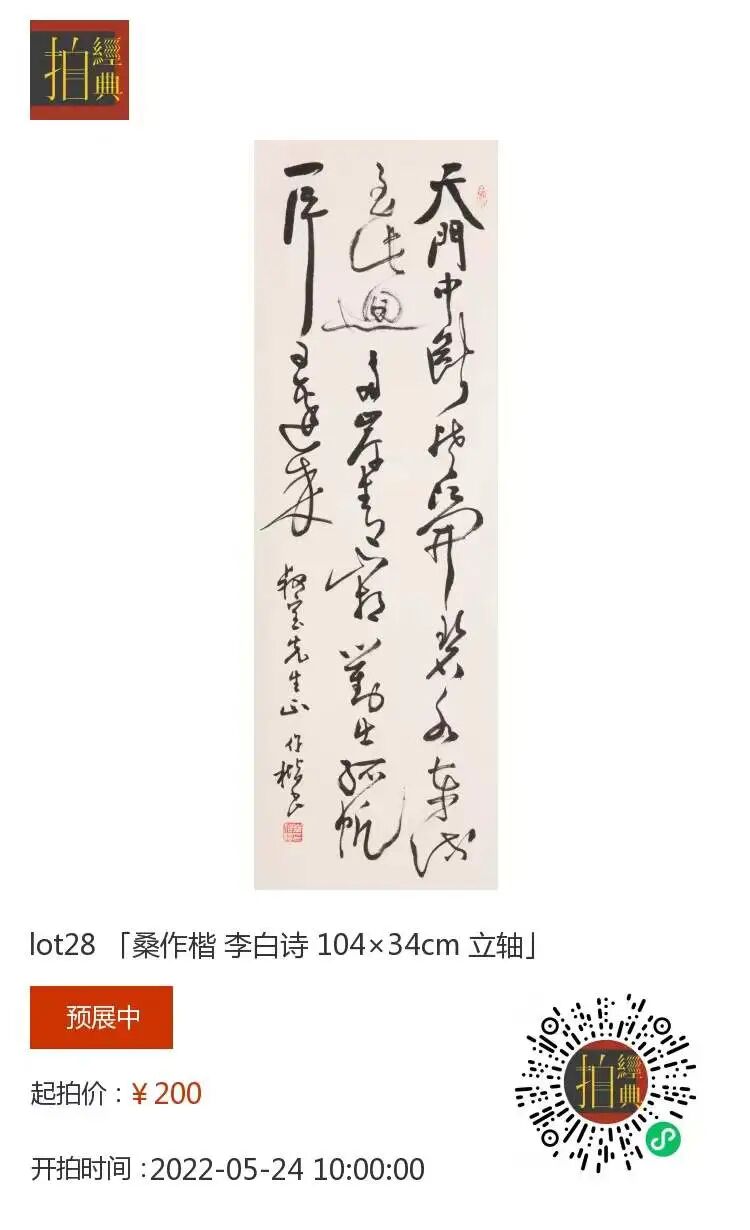 拍
經典
天門中斷楚江開碧水東流
至此迴兩岸青山相對出孤帆
一片日邊來
先生正 作楷
lot28 「桑作楷 李白诗 104×34cm 立轴」
预展中
起拍价：¥200
开拍时间：2022-05-24 10:00:00
拍
經典